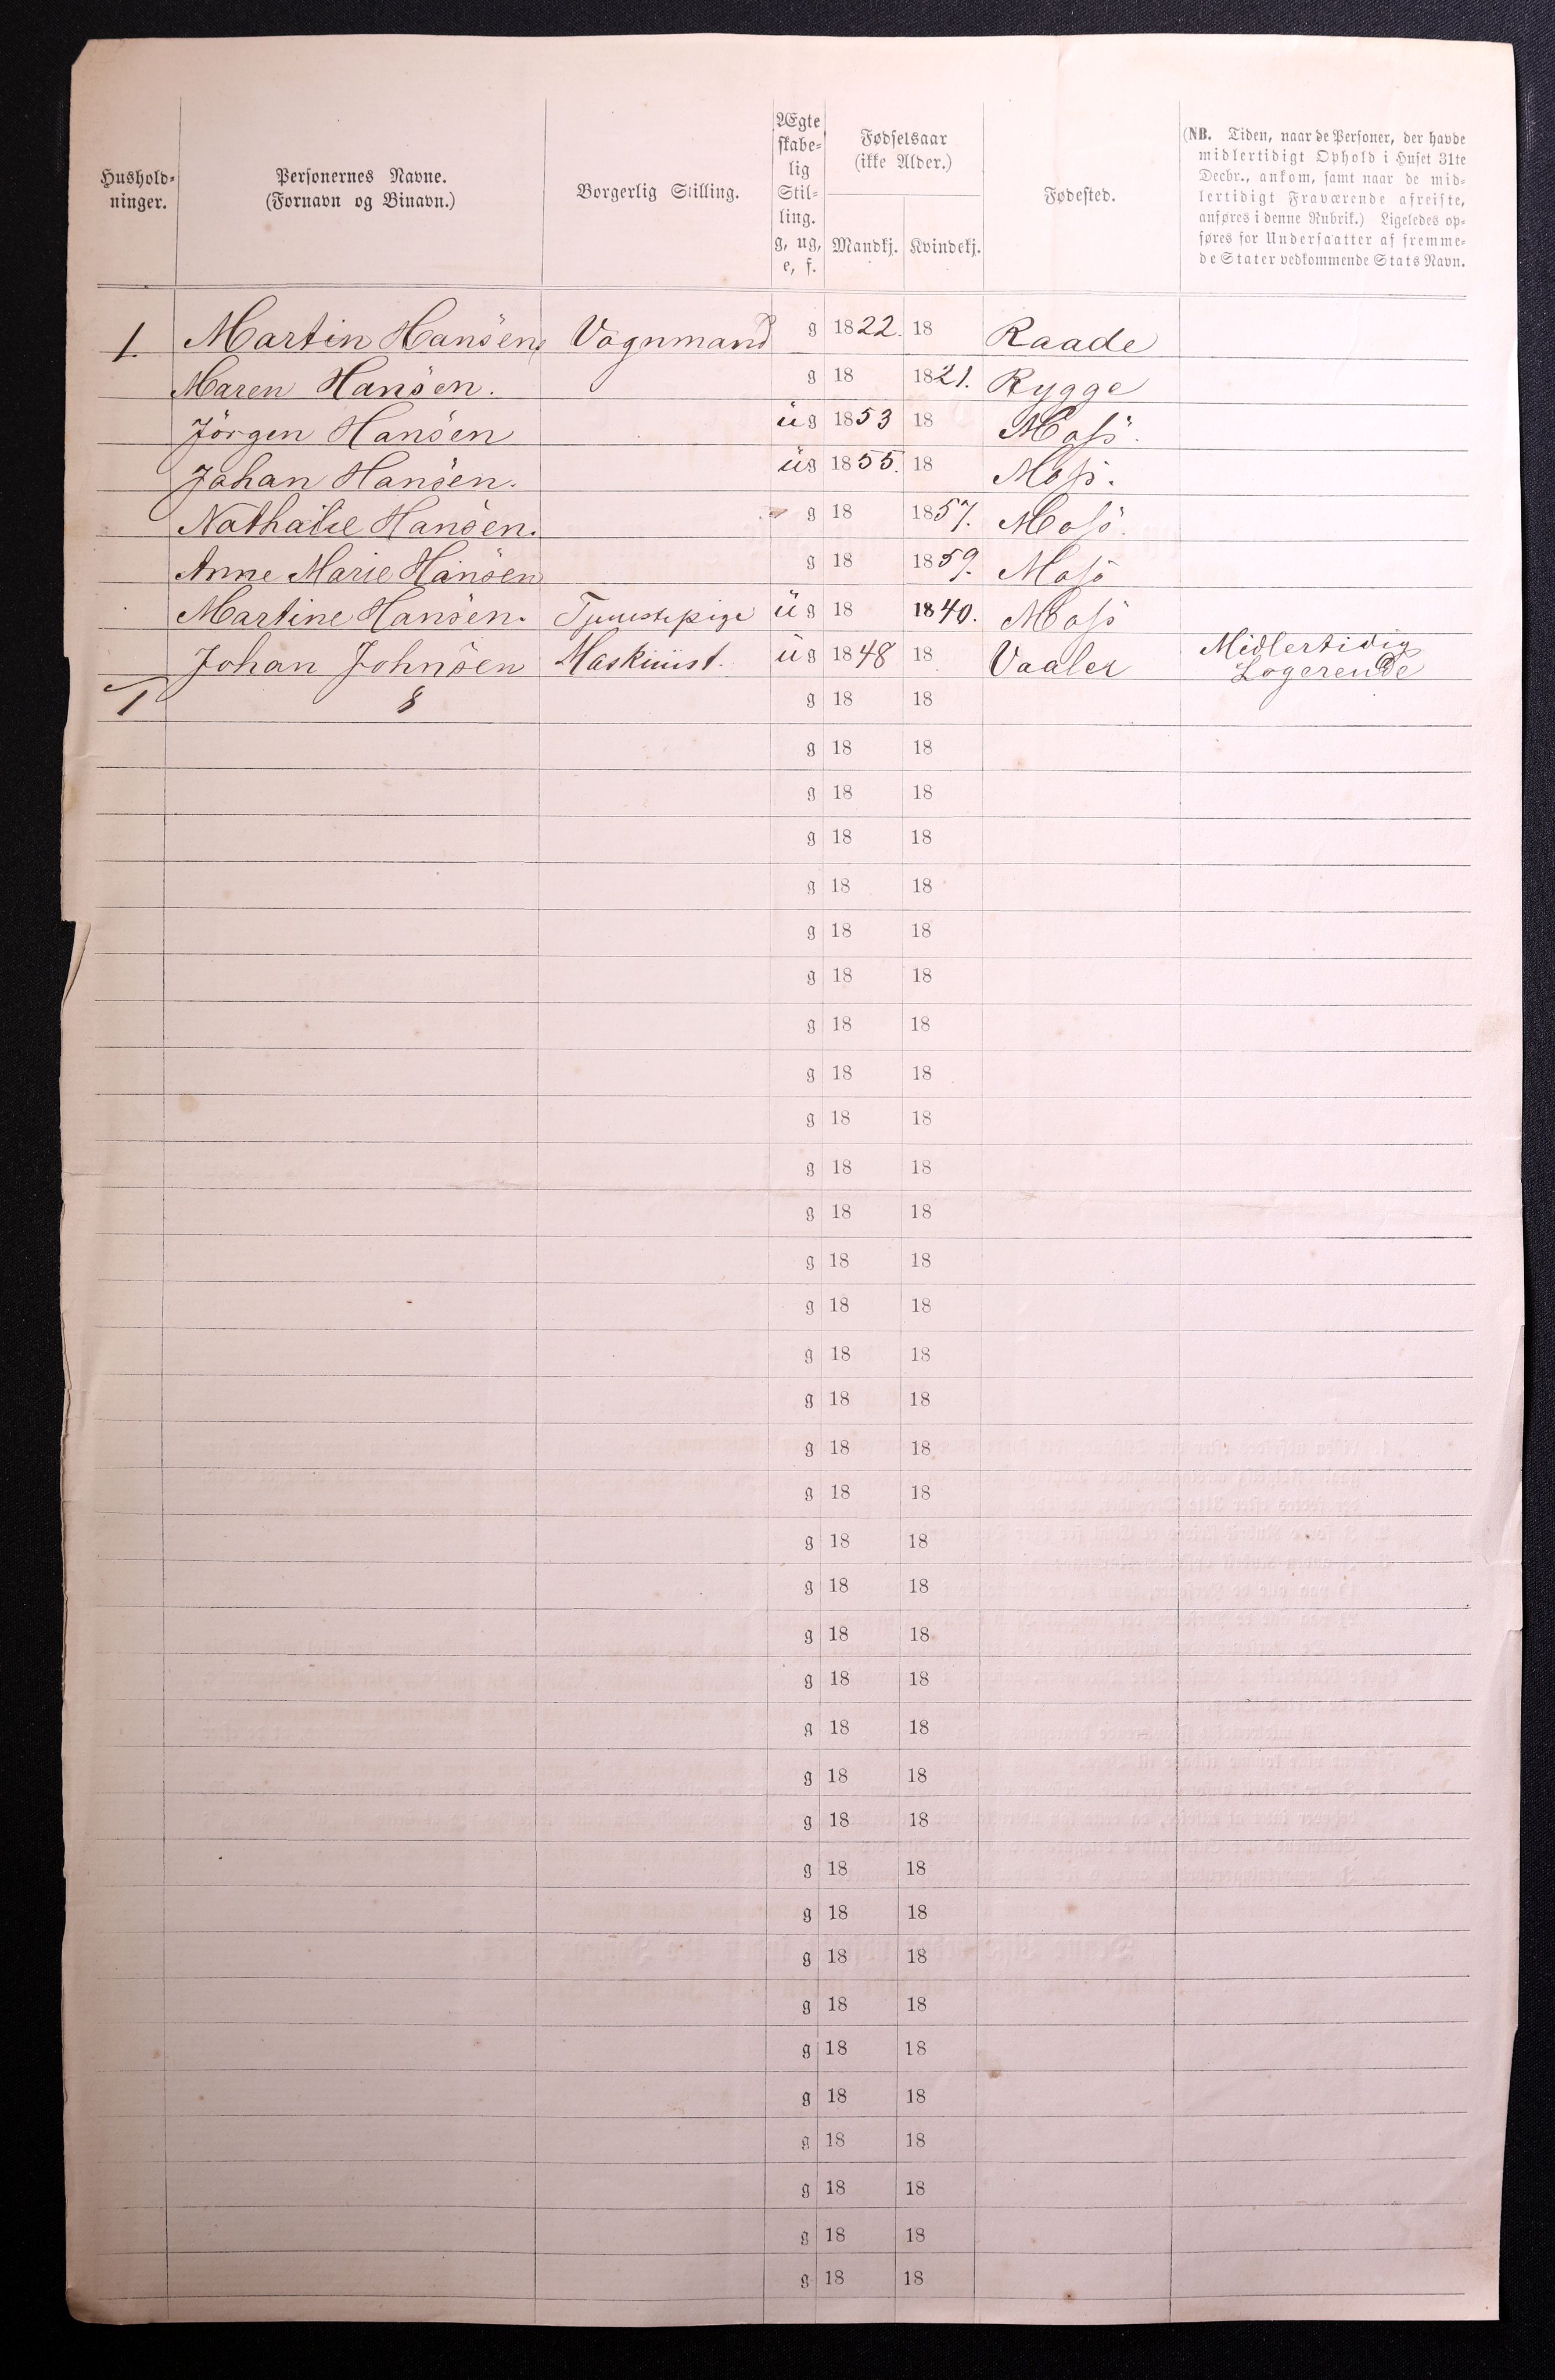 Hushold-
ninger.
Personernes Navne.
(Fornavn og Binavn.)
Borgerlig Stilling.
Ægte
skabe-
lig
Stil-
ling.
g, ug,
e, f.
Fødselsaar
(ikke Alder.)
Mandkj. Kvindekj.
Fødested.
(NB. Tiden, naar de Personer, der havde
midlertidigt Ophold i Huset 31te
Decbr., ankom, samt naar de mid-
lertidigt Fraværende afreiste,
anføres i denne Rubrik.) Ligeledes op-
føres for Undersaatter af fremme-
de Stater vedkommende Stats Navn.
1. Martin Hansen, Vognmand g 1822. 18 Raade
Maren Hansen. g 18 1821. Rygge
Jörgen Hansen ug 1853 18 Moss.
Johan Hansen. ug 1855. 18 Moss.
Nathalie Hansen. g 18 1857. Moss.
Anne Marie Hansen g 18 1859. Moss
Martine Hansen. Tjenestepige ug 18 1840. Moss
Johan Johnsen Maskinist. ug 1848 18 Vaaler Midlertidig
Logerende
1 8 g 18 18
g 18 18
g 18 18
g 18 18
g 18 18
g 18 18
g 18 18
g 18 18
g 18 18
g 18 18
g 18 18
g 18 18
g 18 18
g 18 18
g 18 18
g 18 18
g 18 18
g 18 18
g 18 18
g 18 18
g 18 18
g 18 18
g 18 18
g 18 18
g 18 18
g 18 18
g 18 18
g 18 18
g 18 18
g 18 18
g 18 18
g 18 18
g 18 18
g 18 18
g 18 18